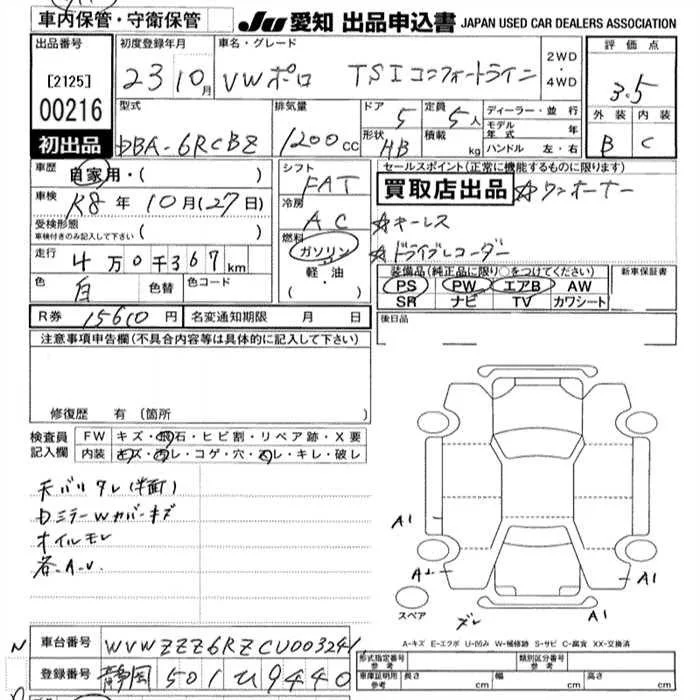 車内保管・守衛保管
JU 愛知 出品申込書 JAPAN USED CAR DEALERS ASSOCIATION
出品番号
[2125]
00216
初出品
初度登録年月
23 10月
車名・グレード
VWポロ TSIコンフォートライン
2WD・4WD
評価点
3.5
外装 内装
B C
型式
DBA-6RCBZ
排気量
1200cc
ドア
5
定員
5人
形状
HB
積載
kg
ディーラー・並行
モデル年式 年
ハンドル 左・右
車歴
自家用・( )
車検
R8年10月(27日)
受検形態
車検付きのみ記入して下さい ( )
走行
4万0千367km
色
白
色替
色コード
シフト
FAT
冷房
AC
燃料
ガソリン
軽・油
( ・ )
セールスポイント(正常に機能するものに限ります)
買取店出品 ☆ワンオーナー
☆キーレス
☆ドライブレコーダー
装備品(純正品に限り○をつけてください)
PS PW エアB AW
SR ナビ TV カワシート
新車保証書
後日品
R券 15610円
名変通知期限 月 日
注意事項申告欄(不具合内容等は具体的に記入して下さい)
修復歴 有 (箇所
検査員記入欄
FW キズ・飛石・ヒビ割・リペア跡・X要
内装 キズ・汚レ・コゲ・穴・スレ・キレ・破レ
天バリタレ(半面)
DミラーWカバーキズ
オイルモレ
各A.U.
A1
A2
A1
A1
ズレ
スペア
A-キズ E-エクボ U-凹み W-補修跡 S-サビ C-腐食 XX-交換済
車台番号
WVWZZZ6RZCU003241
登録番号
静岡501ひ9440
形式指定番号
参考
類別区分番号
参考
車庫証明用
参考
長さ cm
幅 cm
高さ cm